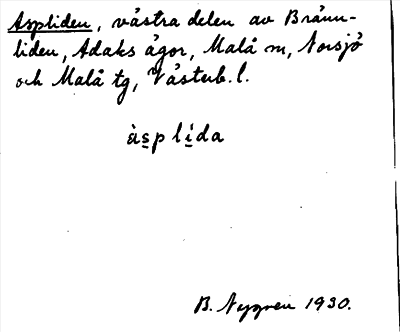 Aspliden, västra delen av Bränn-
liden, Adaks ägor, Malå sn, Norsjö
och Malå tg, Västerb. l.
às̲p lí̲da
B. Nygren 1930.